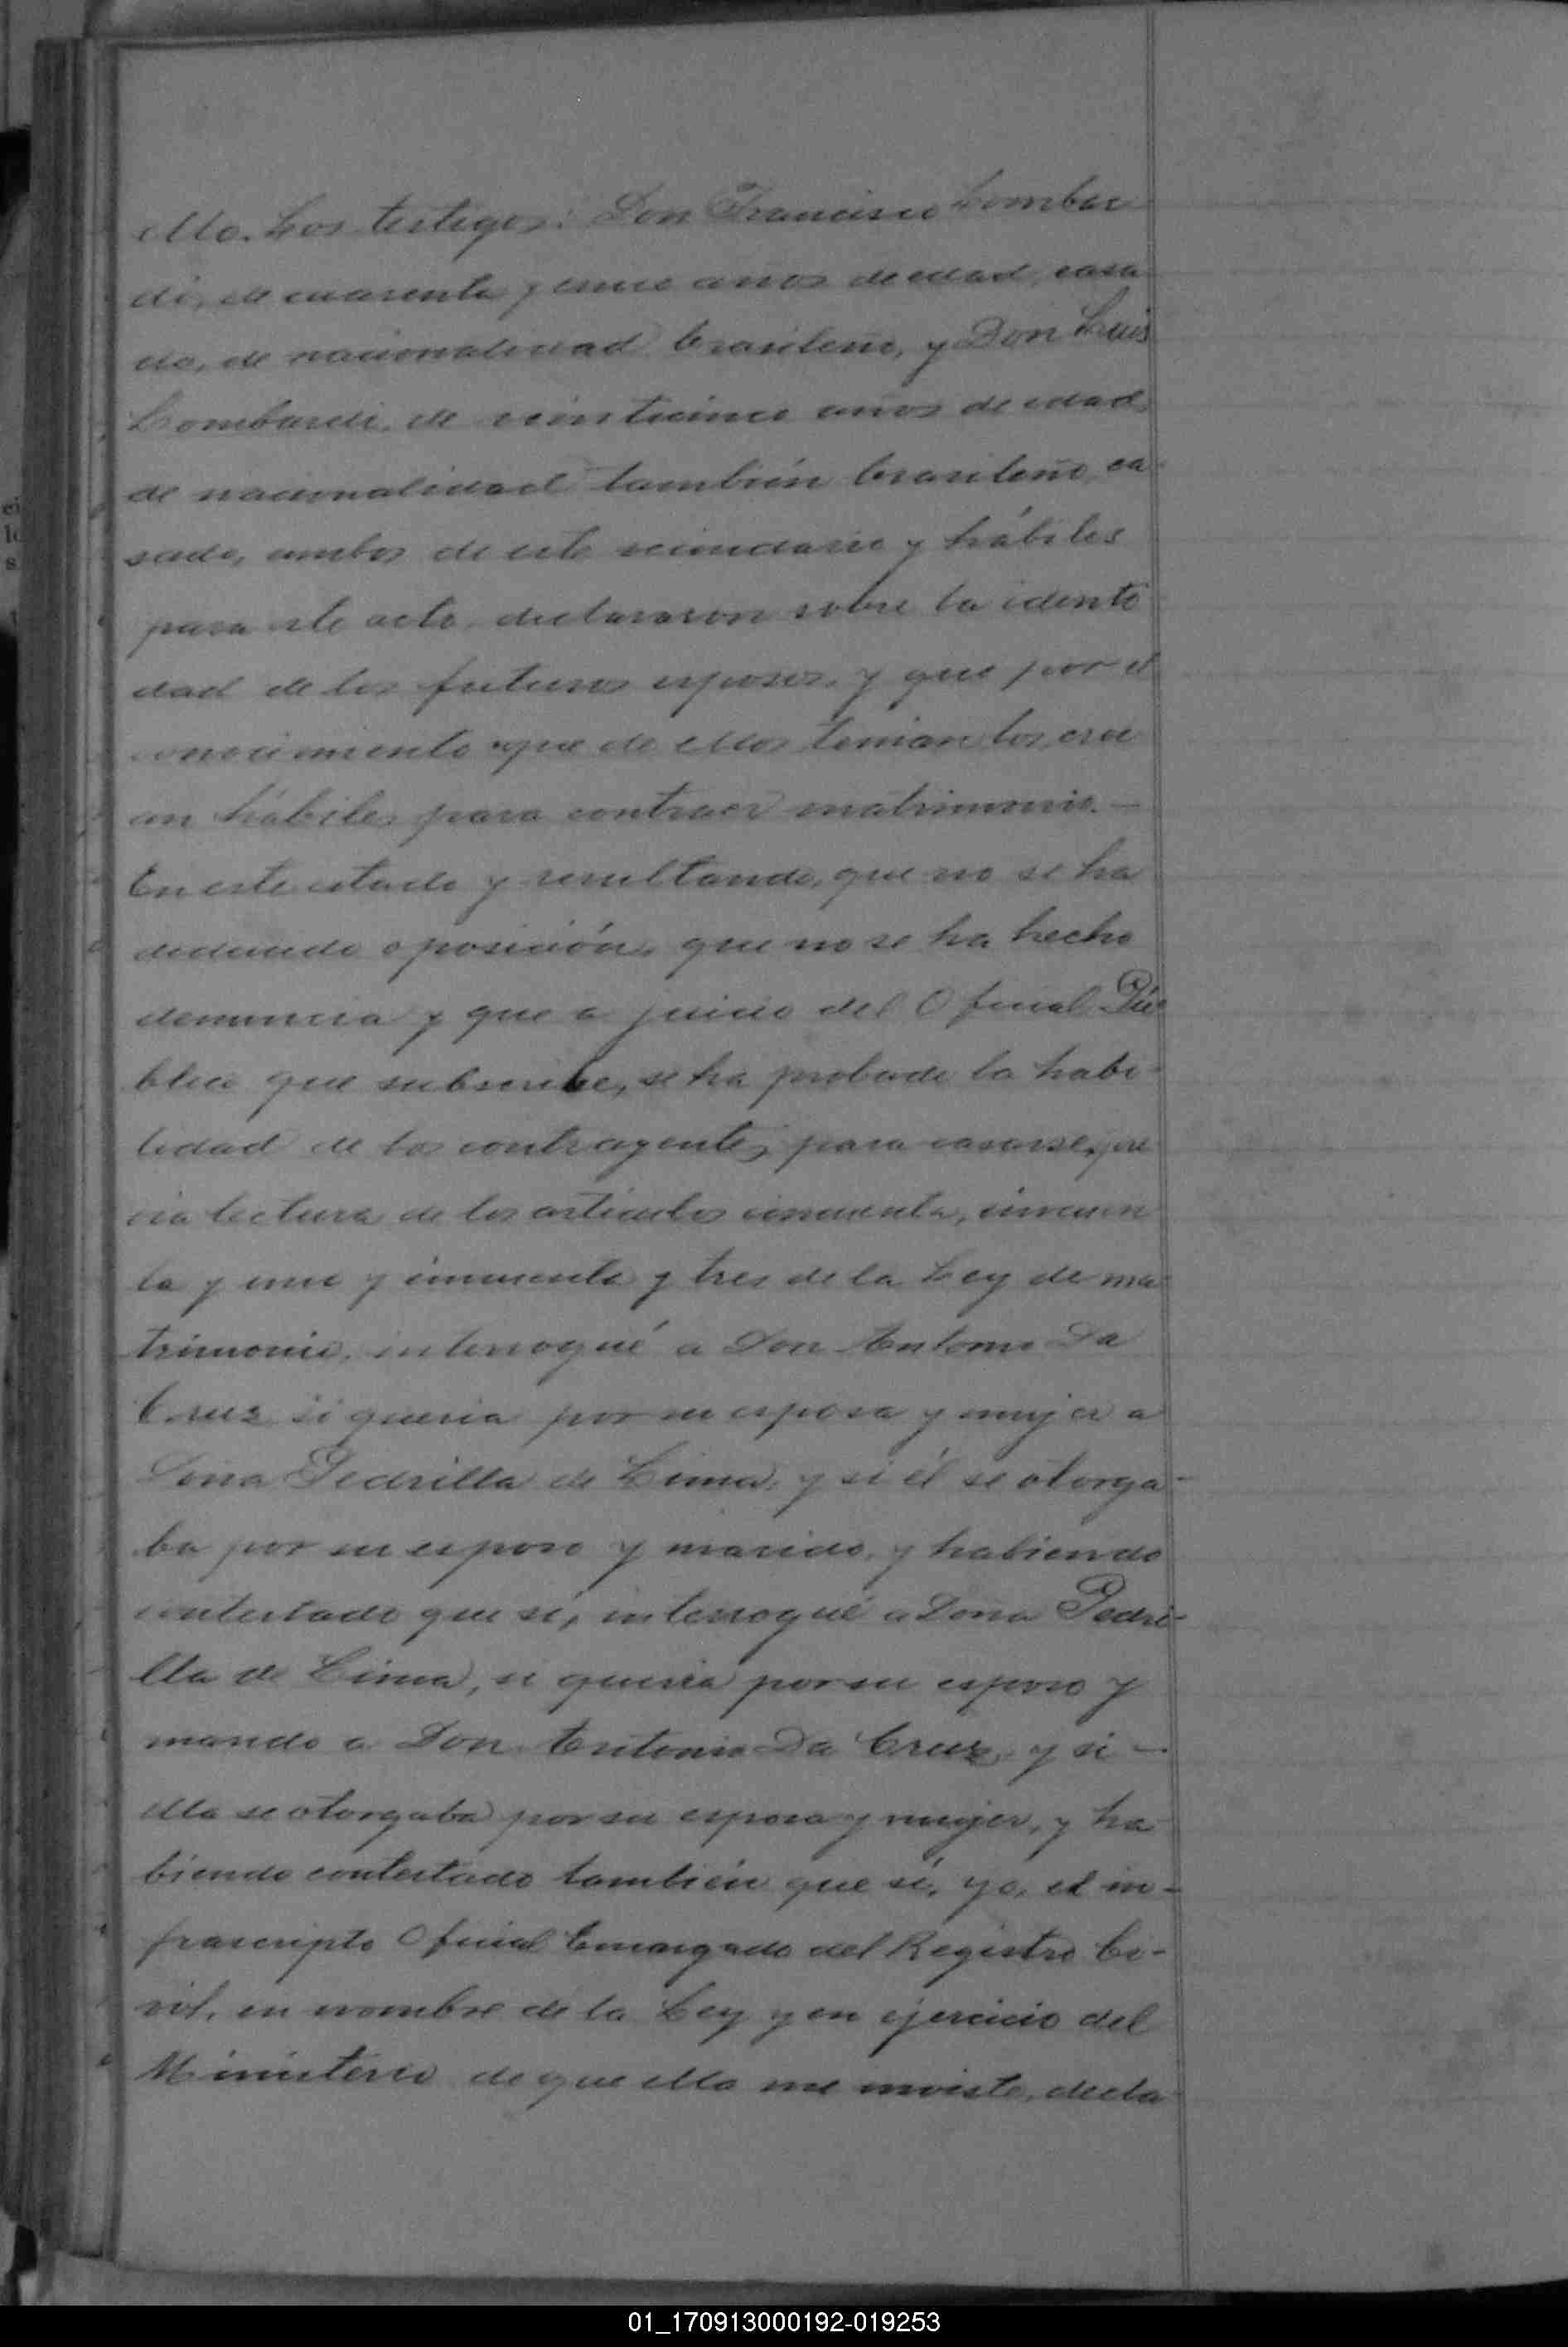 ella. Los testigos: Don Francisco Lombar
di, de cuarenta y años de edad, casa
do, de nacionalidad brasileño, y Don Luis
Lombardi, de veinticinco años de edad,
de nacionalidad también brasileño, ca-
sado, ambos de este vecindario y hábiles
para este acto, declararon sobre la identi
dad de los futuros esposos, y que por el
conocimiento que de ellos tenian los creí
an hábiles para contraer matrimonio. —
En este estado y resultando, que no se ha
deducido oposición, que no se ha hecho
denuncia y que a juicio del Oficial Pú
blico que subscribe, se ha probado la habi-
lidad de los contrayentes para casarse, pre
via lectura de los articulos cincuenta, cincuen
ta y uno y cincuenta y tres de la Ley de ma-
trimonio, interrogué a Don Antonio Da
Cruz si queria por su esposa y mujer a
Doña Pedrilla de Lima, y si él se otorga-
ba por su esposo y marido, y habiendo
contestado que si, interrogué a Doña Pedri-
lla de Lima, si queria por su esposo y
marido a Don Antonio Da Cruz, y si —
ella se otorgaba por su esposa y mujer, y ha
biendo contestado también que si, yo, el in-
frascripto Oficial Encargado del Registro Ci-
vil, en nombre de la Ley y en ejercicio del
Ministerio de que ella me inviste, decla-
01_170913000192-019253